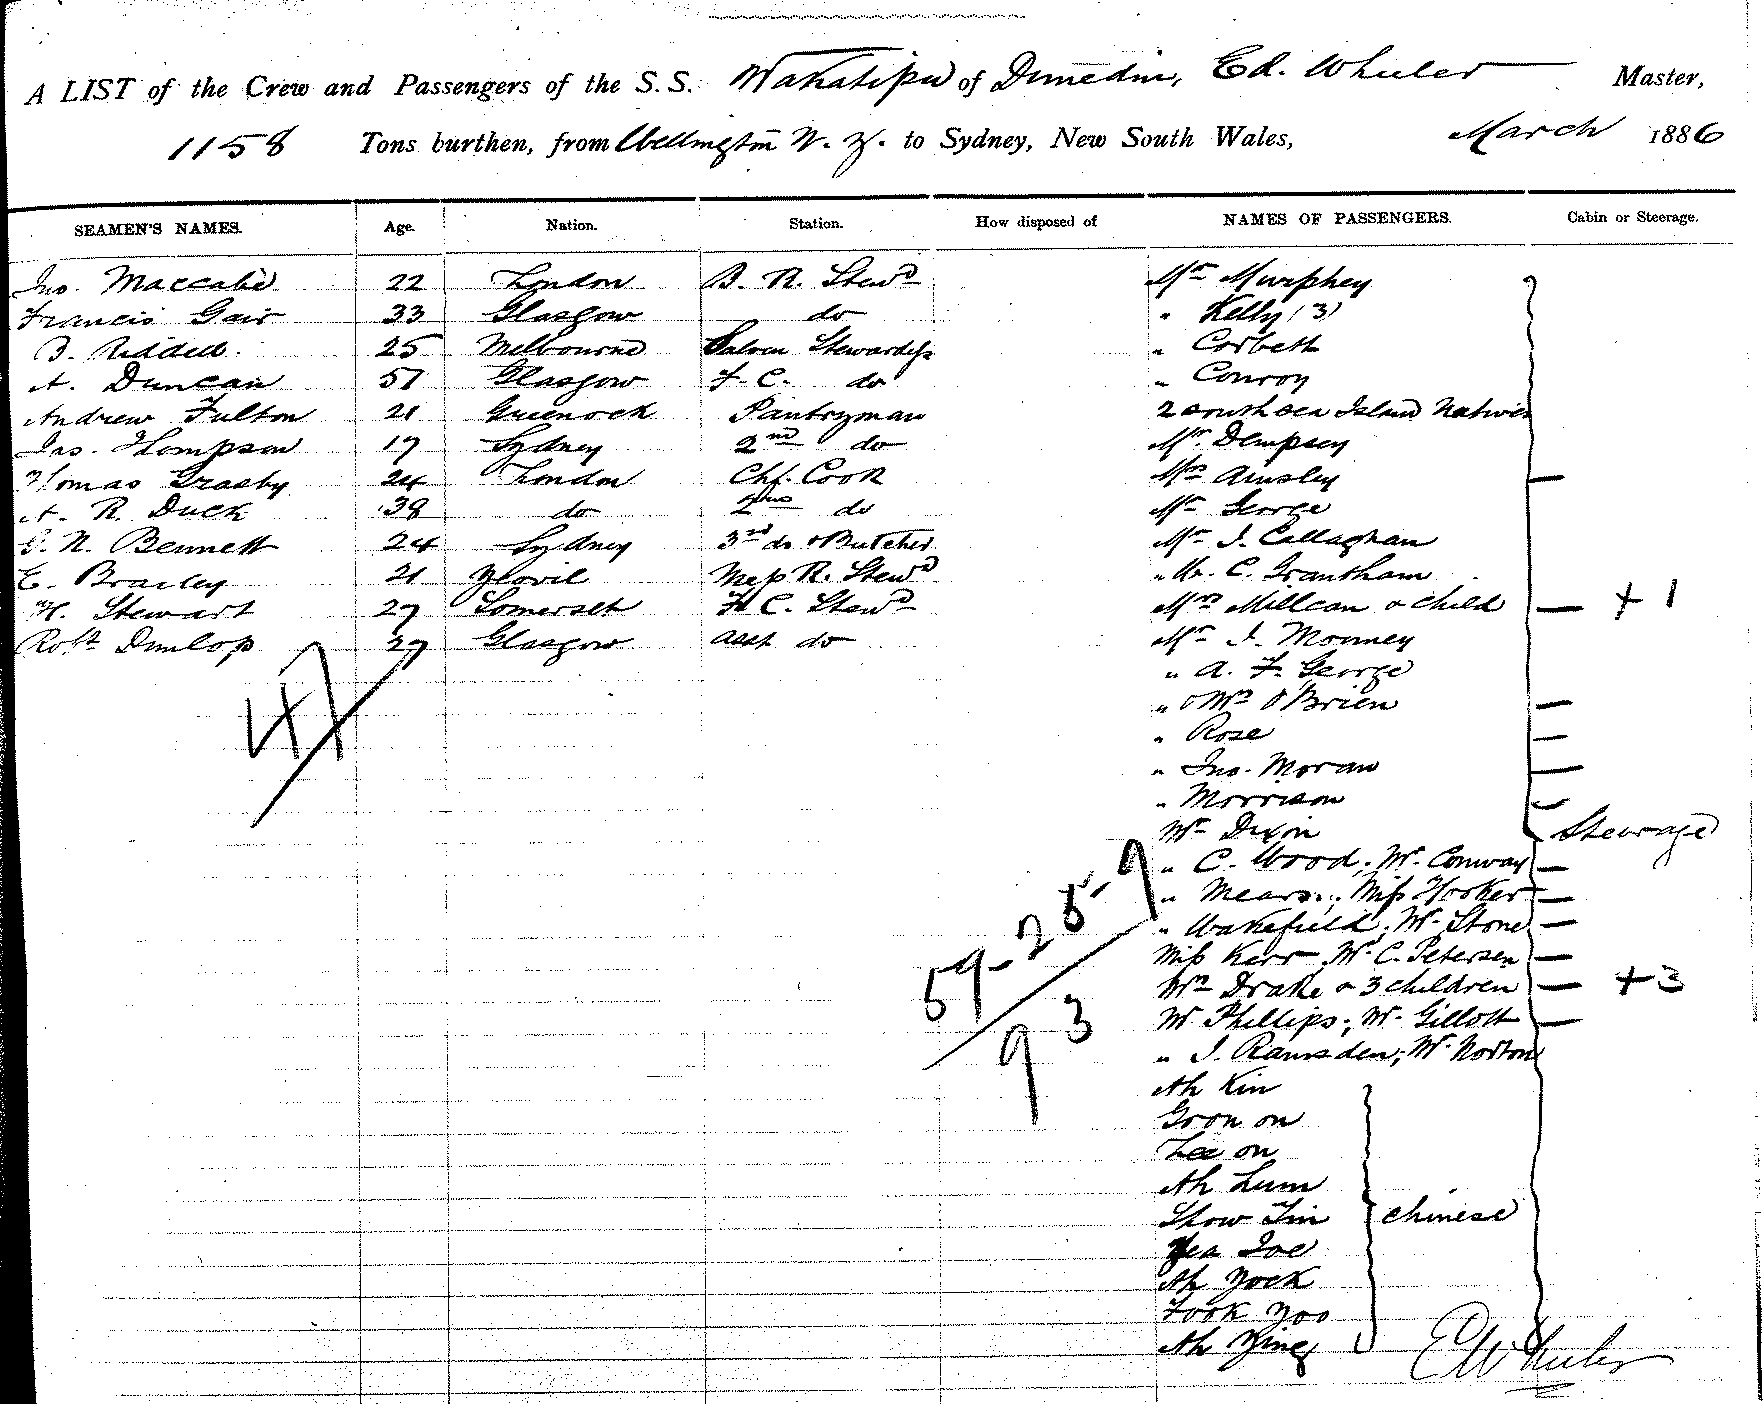 A LIST of the Crew and Passengers of the S.S. Wakatipu of Dunedin, Ed. Wheeler Master,
1158 Tons burthen, from Wellington N. Z. to Sydney, New South Wales, March 1886
SEAMEN'S NAMES. Age. Nation. Station. How disposed of NAMES OF PASSENGERS. Cabin or Steerage.
Jno. Maccabe 22 London B. R. Stewd Mr Murphey
Francis Gair 33 Glasgow do " Kelly (3)
B. Riddell 25 Melbourne Saloon Stewardess " Corbett
A. Duncan 51 Glasgow F. C. do " Conroy
Andrew Fulton 21 Greenock Pantryman 2 South Sea Island Natives
Jas. Thompson 17 Sydney 2nd do Mr Dempsey
Thomas Grasby 24 London Chf. Cook Mrs Ainsley
A. R. Duck 38 do 2nd do Mr George
G. N. Bennett 24 Sydney 3rd do & Butcher Mr J. Callaghan
E. Brailey 21 Yeovil Mess R. Stewd " C. Grantham
H. Stewart 27 Somerset F. C. Stewd Mrs Millean & child + 1
Robt Dunlop 27 Glasgow asst do Mr J. Monney
" A. F. George
" & Mrs O'Brien
47
" Rose
" Jno. Moran
" Morrison
Mr Dixon Steerage
" C. Wood, Mr Conway
" Mears, Miss Hooker
" Wakefield, Mr Stone
59-25-9
Miss Kerr, Mr C. Petersen
Mrs Drake & 3 children + 3
Mr Phillips, Mr Gillott
93
" J. Ramsden, Mr Norton
Ah Kin
Goon on
Lee on
Ah Lum
Show Tin Chinese
Yea Joe
Ah Yock
Fook Yoo
Ah Hing
Ed Wheeler